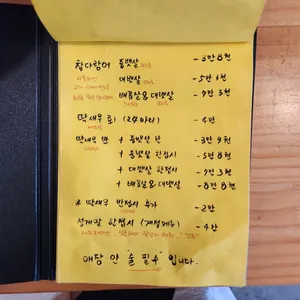 참다랑어 등뱃살 - 3만 8천
대뱃살 - 5만 6천
배꼽살&대뱃살 - 7만 3천
딱새우 회 (24마리) - 4만
딱새우 반 + 등뱃살 반 - 3만 9천
+ 등뱃살 한접시 - 5만 8천
+ 대뱃살 한접시 - 7만 3천
+ 배꼽살&대뱃살 - 8만 8천
# 딱새우 반접시 추가 - 2만
성게알 한접시 (계절메뉴) - 4만
매장 안 술 필수 입니다.